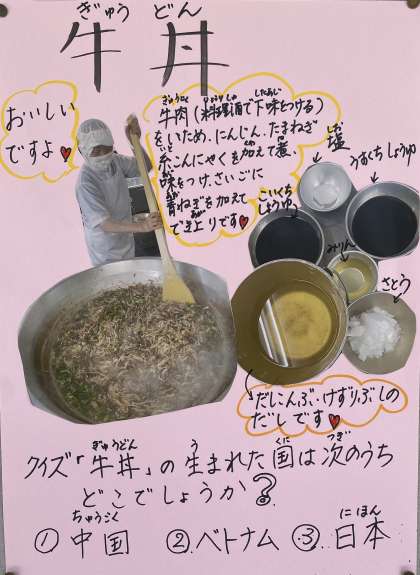 ぎゅう どん
牛 丼
おいしい
ですよ♥
ぎゅうにく りょうりしゅ したあじ
牛肉(料理酒で下味をつける)
をいため、にんじん、たまねぎ
糸こんにゃくを加えて煮、
味をつけ、さいごに
青ねぎを加えて
でき上りです♥
しお
塩
うすくちしょうゆ
こいくち
しょうゆ
みりん
さとう
だしこんぶ・けずりぶしの
だしです♥
ぎゅうどん う くに つぎ
クイズ「牛丼」の生まれた国は次のうち
どこでしょうか?
ちゅうごく にほん
①中国 ②ベトナム ③日本